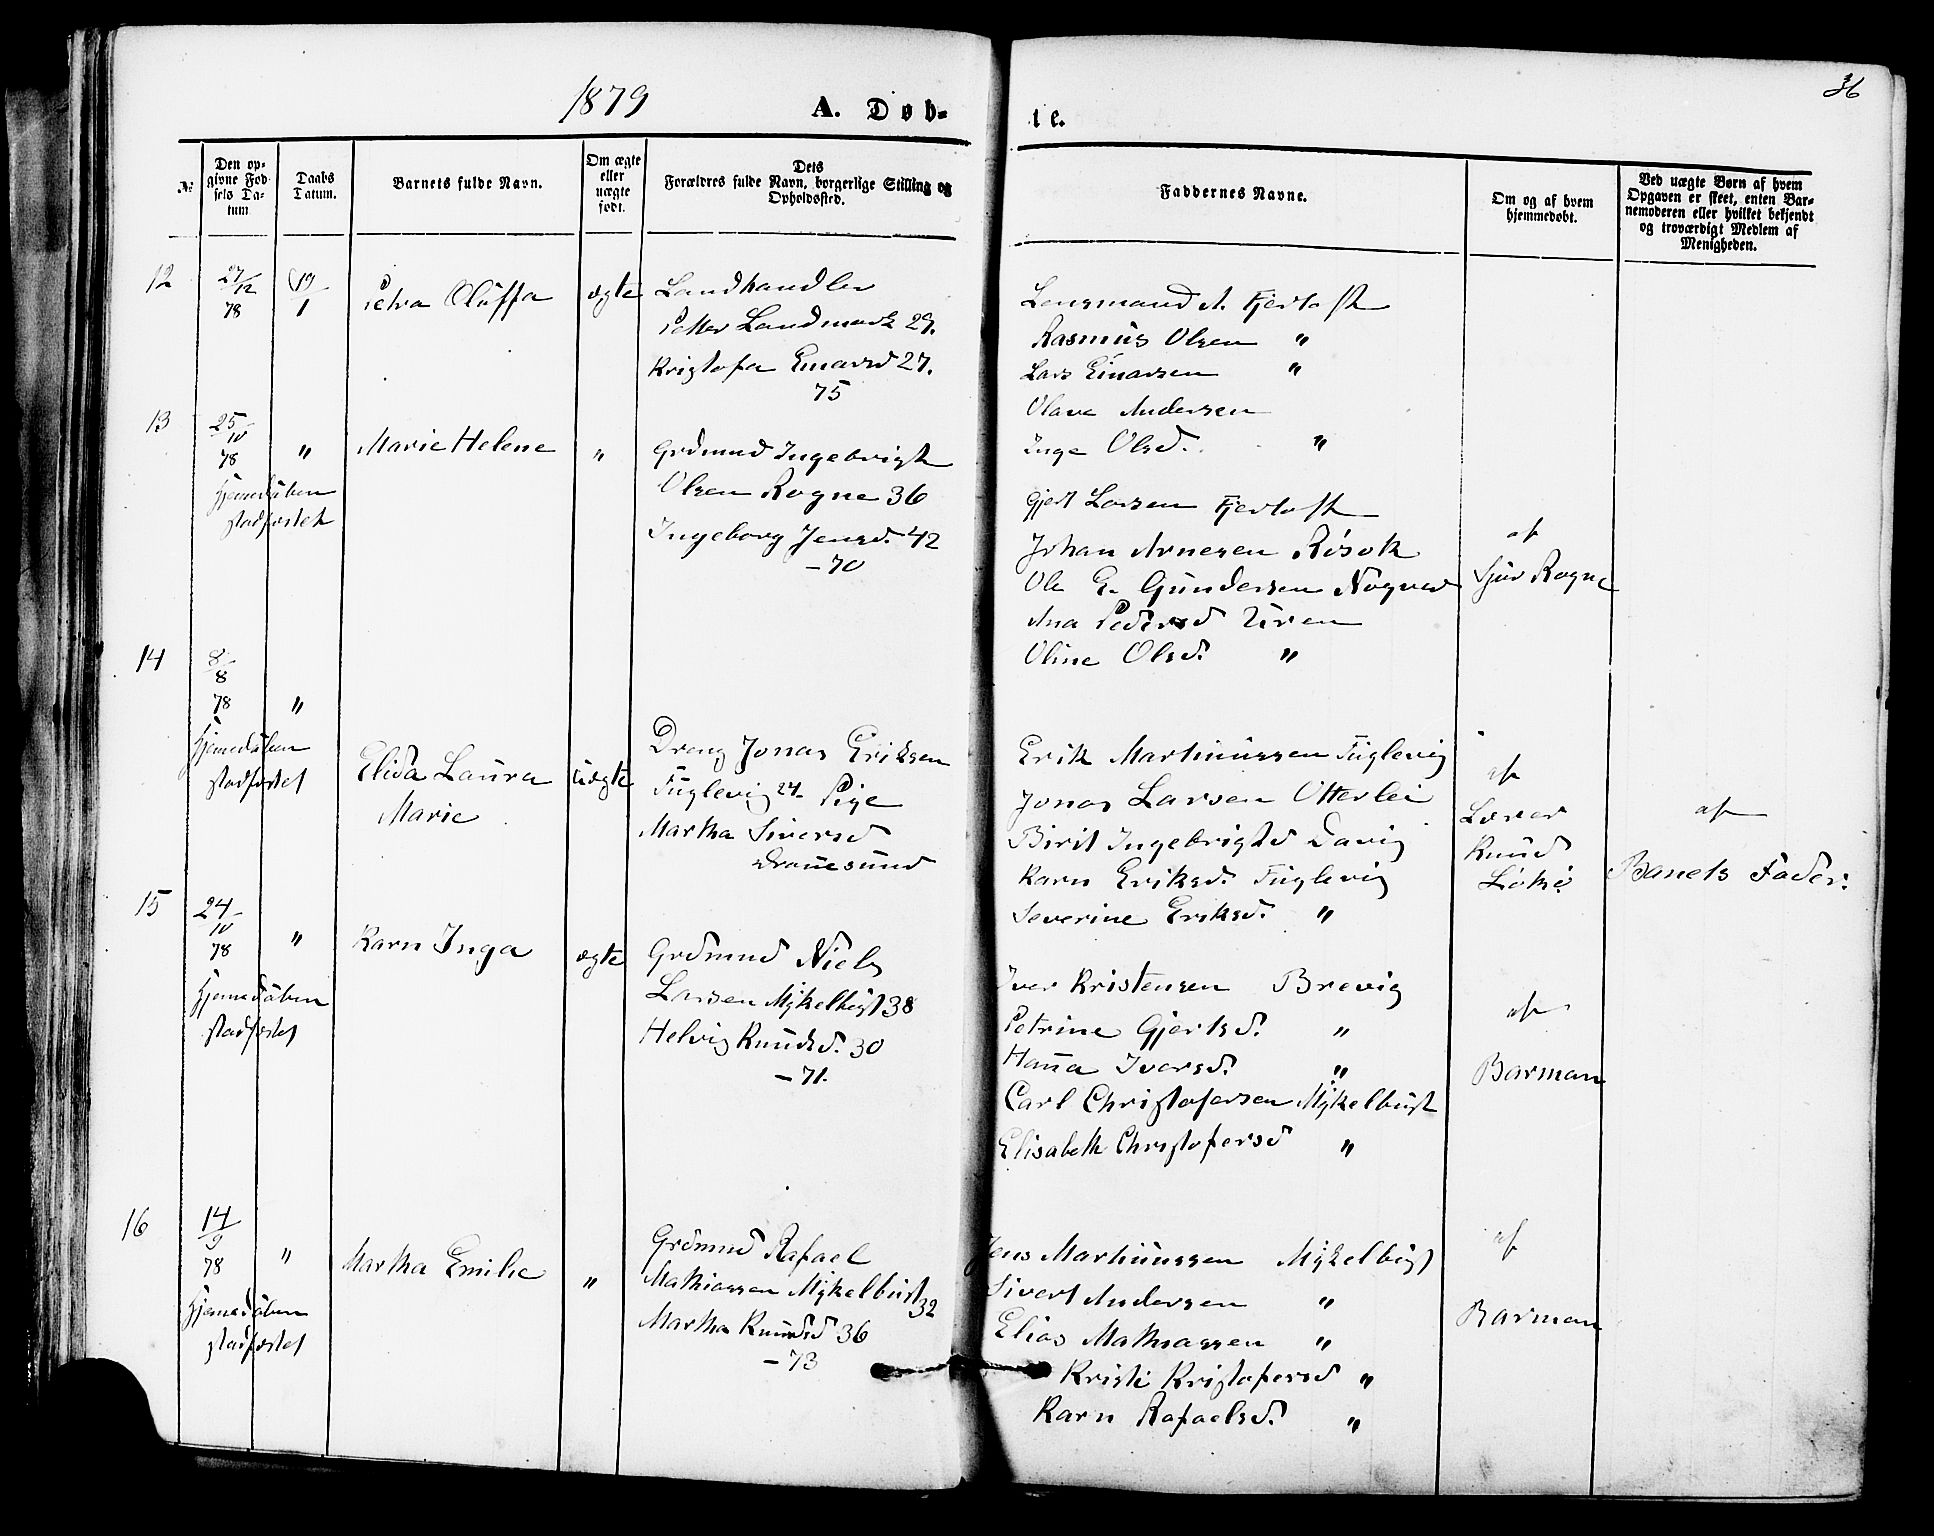 1879
A. Døb-
te.
36
№
Den op-
givne Fød-
sels Da-
tum
Daabs
Datum.
Barnets fulde Navn.
Om ægte
eller
uægte
født.
Dets
Forældres fulde Navn, borgerlige Stilling og
Opholdssted.
Faddernes Navne.
Om og af hvem
hjemmedøbt.
Ved uægte Børn af hvem
Opgaven er skeet, enten Bar-
nemoderen eller hvilket bekjendt
og troværdigt Medlem af
Menigheden.
12
27/12
78
19/1
Petra Oluffa
ægte
Landhandler
Petter Landmark 29.
Kristofa Einarsd 27.
75
Lensmand A. Fjertoft
Rasmus Olsen "
Lars Einarsen "
Olava Andersen
Inge Olsd. "
13
25/10
78
"
Hjemedåben
stadfæstet
Marie Helene
"
Grdmnd Ingebrigt
Olsen Rogne 36
Ingeborg Jensd. 42
-70
Gjert Larsen Fjertoft
Johan Arnesen Røsok
Ole E. Gundersen Nogved
Ana Pedersd Uren
Oline Olsd. "
af
Sjur Rogne
14
8/8
78
"
Hjemedåben
stadfæstet
Elida Laura
Marie
uægte
Dreng Jonas Eriksen
Fuglevig 24- Pige
Martha Siversd
Dronesund
Erik Martinussen Fuglevig
Jonas Larsen Otterlei
Birit Ingebrigtsd Davig
Karn Eriksd. Fuglevig
Severine Eriksd. "
af
Lærer
Knud
Løkø
af
Banets Fader.
15
24/10
78
"
Hjemedåben
stadfæstet
Karn Inga
ægte
Grdmnd Niels
Larsen Mykelbust 38
Helvig Knudsd. 30
-71.
Iver Kristensen Brevig
Petrine Gjertsd. "
Hana Iversd. "
Carl Christofersen Mykelbust
Elisabeth Christofersd "
af
Barman
16
14/9
78
"
Hjemedåben
stadfæstet
Martha Emilie
"
Grdmnd Rafael
Mathiassen Mykelbust
32
Martha Knudsd 36
-73
Jens Martinussen Mykelbust
Sivert Andersen "
Elias Mathiassen "
Kristi Kristofersd "
Karn Rafaelsd. "
af
Barman